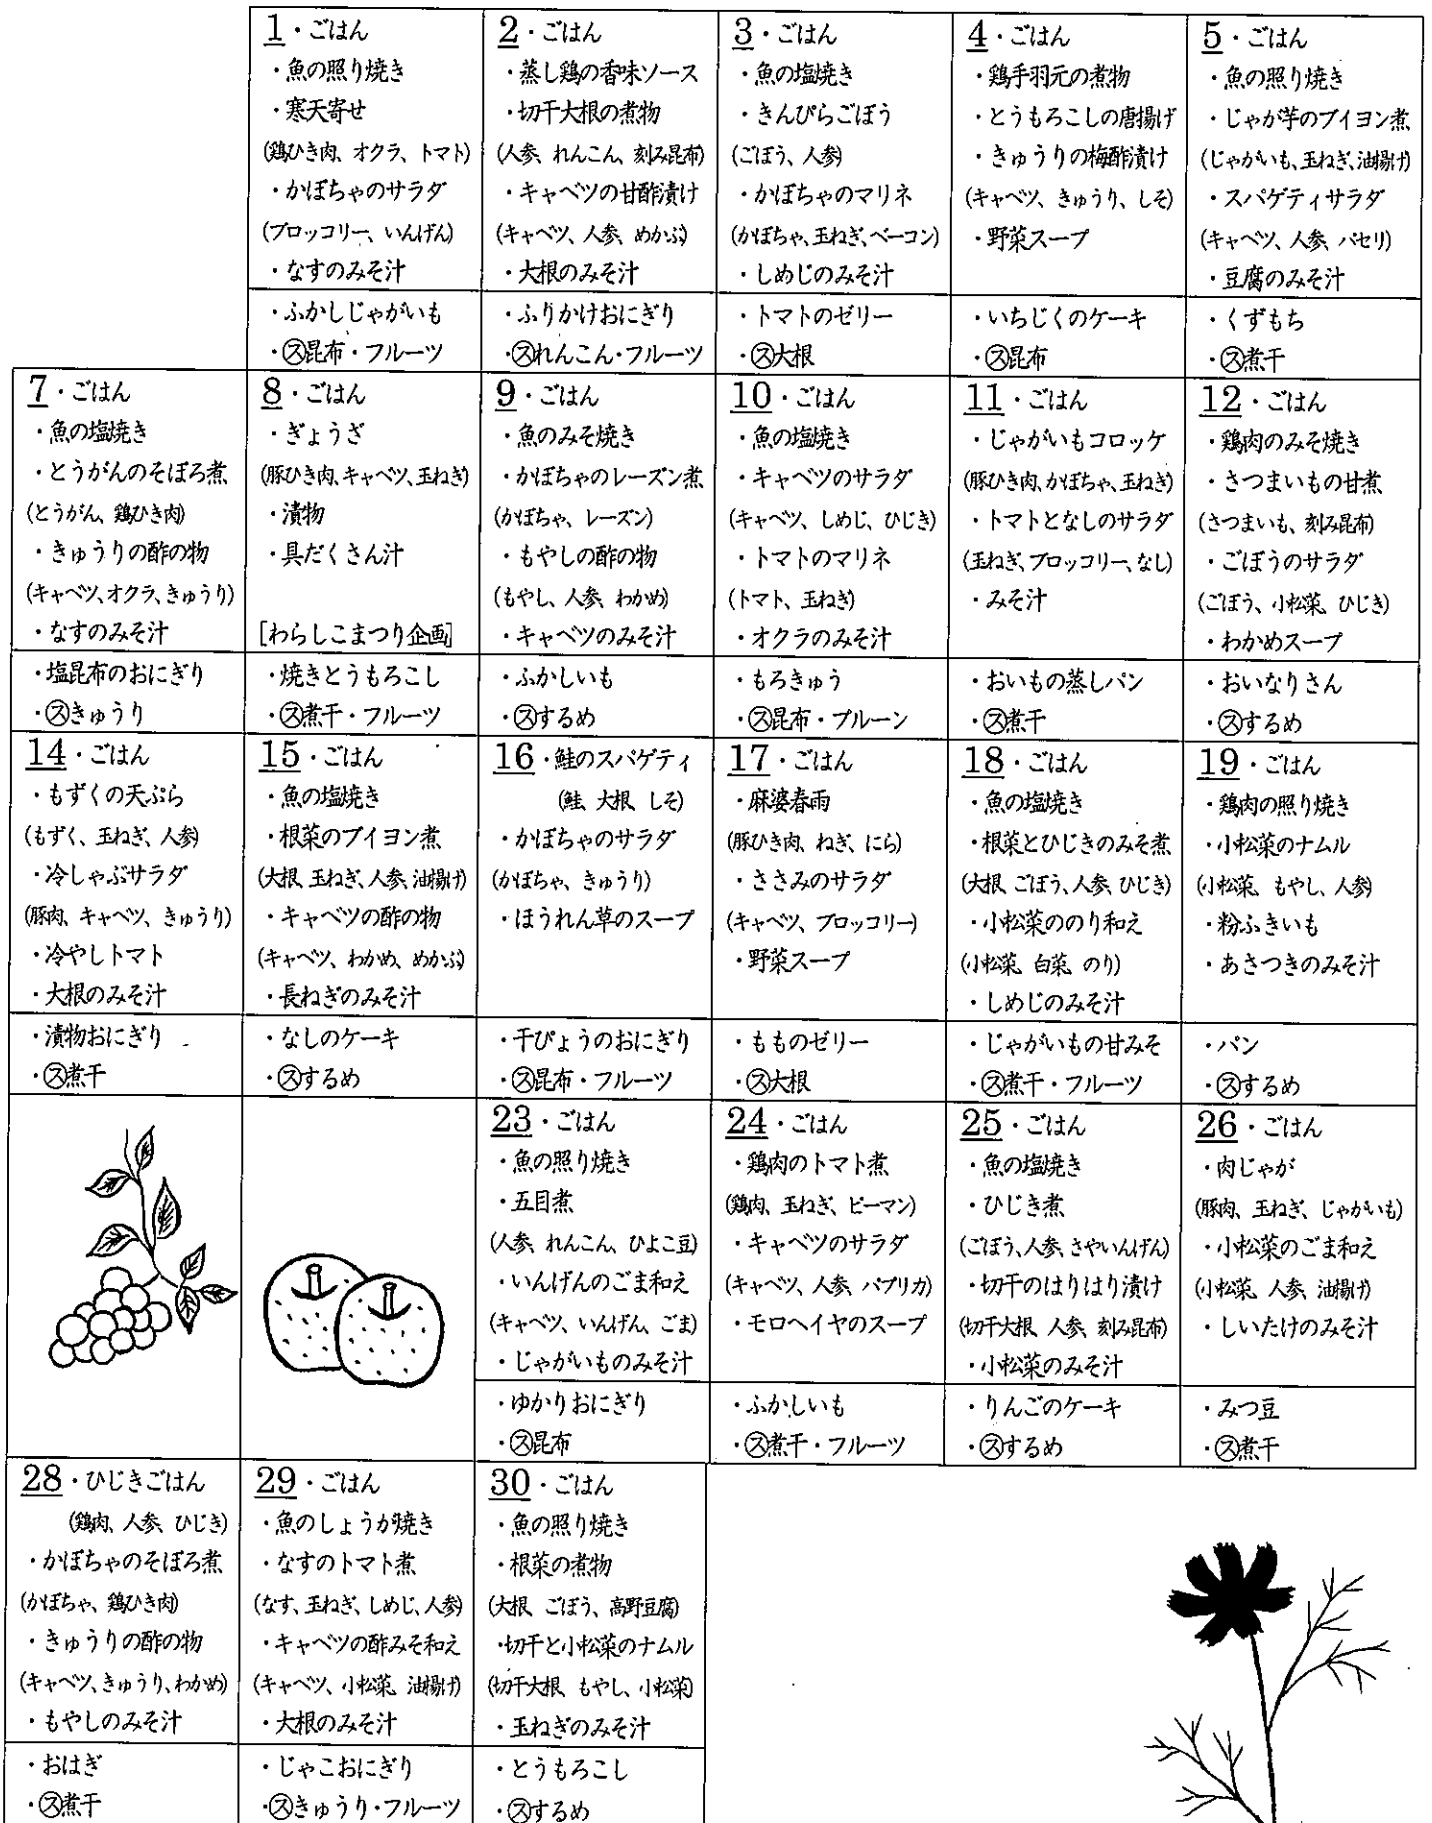 1・ごはん
・魚の照り焼き
・寒天寄せ
(鶏ひき肉、オクラ、トマト)
・かぼちゃのサラダ
(ブロッコリー、いんげん)
・なすのみそ汁
・ふかしじゃがいも
・㋜昆布・フルーツ
2・ごはん
・蒸し鶏の香味ソース
・切干大根の煮物
(人参、れんこん、刻み昆布)
・キャベツの甘酢漬け
(キャベツ、人参、めかぶ)
・大根のみそ汁
・ふりかけおにぎり
・㋜れんこん・フルーツ
3・ごはん
・魚の塩焼き
・きんぴらごぼう
(ごぼう、人参)
・かぼちゃのマリネ
(かぼちゃ、玉ねぎ、ベーコン)
・しめじのみそ汁
・トマトのゼリー
・㋜大根
4・ごはん
・鶏手羽元の煮物
・とうもろこしの唐揚げ
・きゅうりの梅酢漬け
(キャベツ、きゅうり、しそ)
・野菜スープ
・いちじくのケーキ
・㋜昆布
5・ごはん
・魚の照り焼き
・じゃが芋のブイヨン煮
(じゃがいも、玉ねぎ、油揚げ)
・スパゲティサラダ
(キャベツ、人参、パセリ)
・豆腐のみそ汁
・くずもち
・㋜煮干
7・ごはん
・魚の塩焼き
・とうがんのそぼろ煮
(とうがん、鶏ひき肉)
・きゅうりの酢の物
(キャベツ、オクラ、きゅうり)
・なすのみそ汁
・塩昆布のおにぎり
・㋜きゅうり
8・ごはん
・ぎょうざ
(豚ひき肉、キャベツ、玉ねぎ)
・漬物
・具だくさん汁
[わらしこまつり企画]
・焼きとうもろこし
・㋜煮干・フルーツ
9・ごはん
・魚のみそ焼き
・かぼちゃのレーズン煮
(かぼちゃ、レーズン)
・もやしの酢の物
(もやし、人参、わかめ)
・キャベツのみそ汁
・ふかしいも
・㋜するめ
10・ごはん
・魚の塩焼き
・キャベツのサラダ
(キャベツ、しめじ、ひじき)
・トマトのマリネ
(トマト、玉ねぎ)
・オクラのみそ汁
・もろきゅう
・㋜昆布・プルーン
11・ごはん
・じゃがいもコロッケ
(豚ひき肉、かぼちゃ、玉ねぎ)
・トマトとなしのサラダ
(玉ねぎ、ブロッコリー、なし)
・みそ汁
・おいもの蒸しパン
・㋜煮干
12・ごはん
・鶏肉のみそ焼き
・さつまいもの甘煮
(さつまいも、刻み昆布)
・ごぼうのサラダ
(ごぼう、小松菜、ひじき)
・わかめスープ
・おいなりさん
・㋜するめ
14・ごはん
・もずくの天ぷら
(もずく、玉ねぎ、人参)
・冷しゃぶサラダ
(豚肉、キャベツ、きゅうり)
・冷やしトマト
・大根のみそ汁
・漬物おにぎり
・㋜煮干
15・ごはん
・魚の塩焼き
・根菜のブイヨン煮
(大根、玉ねぎ、人参、油揚げ)
・キャベツの酢の物
(キャベツ、わかめ、めかぶ)
・長ねぎのみそ汁
・なしのケーキ
・㋜するめ
16・鮭のスパゲティ
(鮭、大根、しそ)
・かぼちゃのサラダ
(かぼちゃ、きゅうり)
・ほうれん草のスープ
・干ぴょうのおにぎり
・㋜昆布・フルーツ
17・ごはん
・麻婆春雨
(豚ひき肉、ねぎ、にら)
・ささみのサラダ
(キャベツ、ブロッコリー)
・野菜スープ
・もものゼリー
・㋜大根
18・ごはん
・魚の塩焼き
・根菜とひじきのみそ煮
(大根、ごぼう、人参、ひじき)
・小松菜ののり和え
(小松菜、白菜、のり)
・しめじのみそ汁
・じゃがいもの甘みそ
・㋜煮干・フルーツ
19・ごはん
・鶏肉の照り焼き
・小松菜のナムル
(小松菜、もやし、人参)
・粉ふきいも
・あさつきのみそ汁
・パン
・㋜するめ
23・ごはん
・魚の照り焼き
・五目煮
(人参、れんこん、ひよこ豆)
・いんげんのごま和え
(キャベツ、いんげん、ごま)
・じゃがいものみそ汁
・ゆかりおにぎり
・㋜昆布
24・ごはん
・鶏肉のトマト煮
(鶏肉、玉ねぎ、ピーマン)
・キャベツのサラダ
(キャベツ、人参、パプリカ)
・モロヘイヤのスープ
・ふかしいも
・㋜煮干・フルーツ
25・ごはん
・魚の塩焼き
・ひじき煮
(ごぼう、人参、さやいんげん)
・切干のはりはり漬け
(切干大根、人参、刻み昆布)
・小松菜のみそ汁
・りんごのケーキ
・㋜するめ
26・ごはん
・肉じゃが
(豚肉、玉ねぎ、じゃがいも)
・小松菜のごま和え
(小松菜、人参、油揚げ)
・しいたけのみそ汁
・みつ豆
・㋜煮干
28・ひじきごはん
(鶏肉、人参、ひじき)
・かぼちゃのそぼろ煮
(かぼちゃ、鶏ひき肉)
・きゅうりの酢の物
(キャベツ、きゅうり、わかめ)
・もやしのみそ汁
・おはぎ
・㋜煮干
29・ごはん
・魚のしょうが焼き
・なすのトマト煮
(なす、玉ねぎ、しめじ、人参)
・キャベツの酢みそ和え
(キャベツ、小松菜、油揚げ)
・大根のみそ汁
・じゃこおにぎり
・㋜きゅうり・フルーツ
30・ごはん
・魚の照り焼き
・根菜の煮物
(大根、ごぼう、高野豆腐)
・切干と小松菜のナムル
(切干大根、もやし、小松菜)
・玉ねぎのみそ汁
・とうもろこし
・㋜するめ